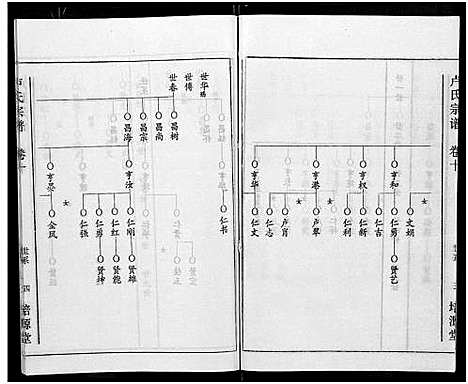 卢氏宗谱
卷十
三
培源堂
亨和
亨权
亨港
亨华
文娟
仁勇
仁吉
仁新
仁利
卢翠
卢肖
仁志
仁文
贤艺
女
女
世华
世傅
世春
昌树
昌尚
昌宗
昌海
亨汝
亨荣
仁书
仁刚
仁红
仁勇
仁强
金凤
贤雄
贤能
贤坤
女
卢氏宗谱
卷十
世系
四
培源堂